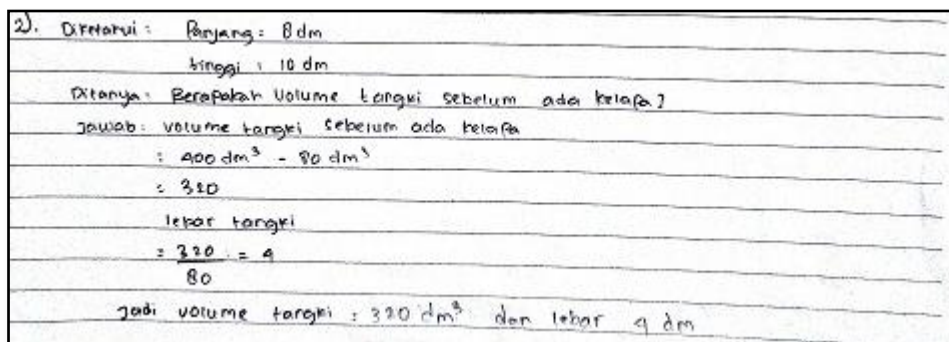 2). Diketahui : Panjang : 8 dm
tinggi : 10 dm
Ditanya : Berapakah Volume tangki sebelum ada kelapa ?
Jawab : volume tangki sebelum ada kelapa
: 400 dm³ - 80 dm³
: 320
lebar tangki
: 320/80 = 4
Jadi volume tangki : 320 dm³ dan lebar 4 dm